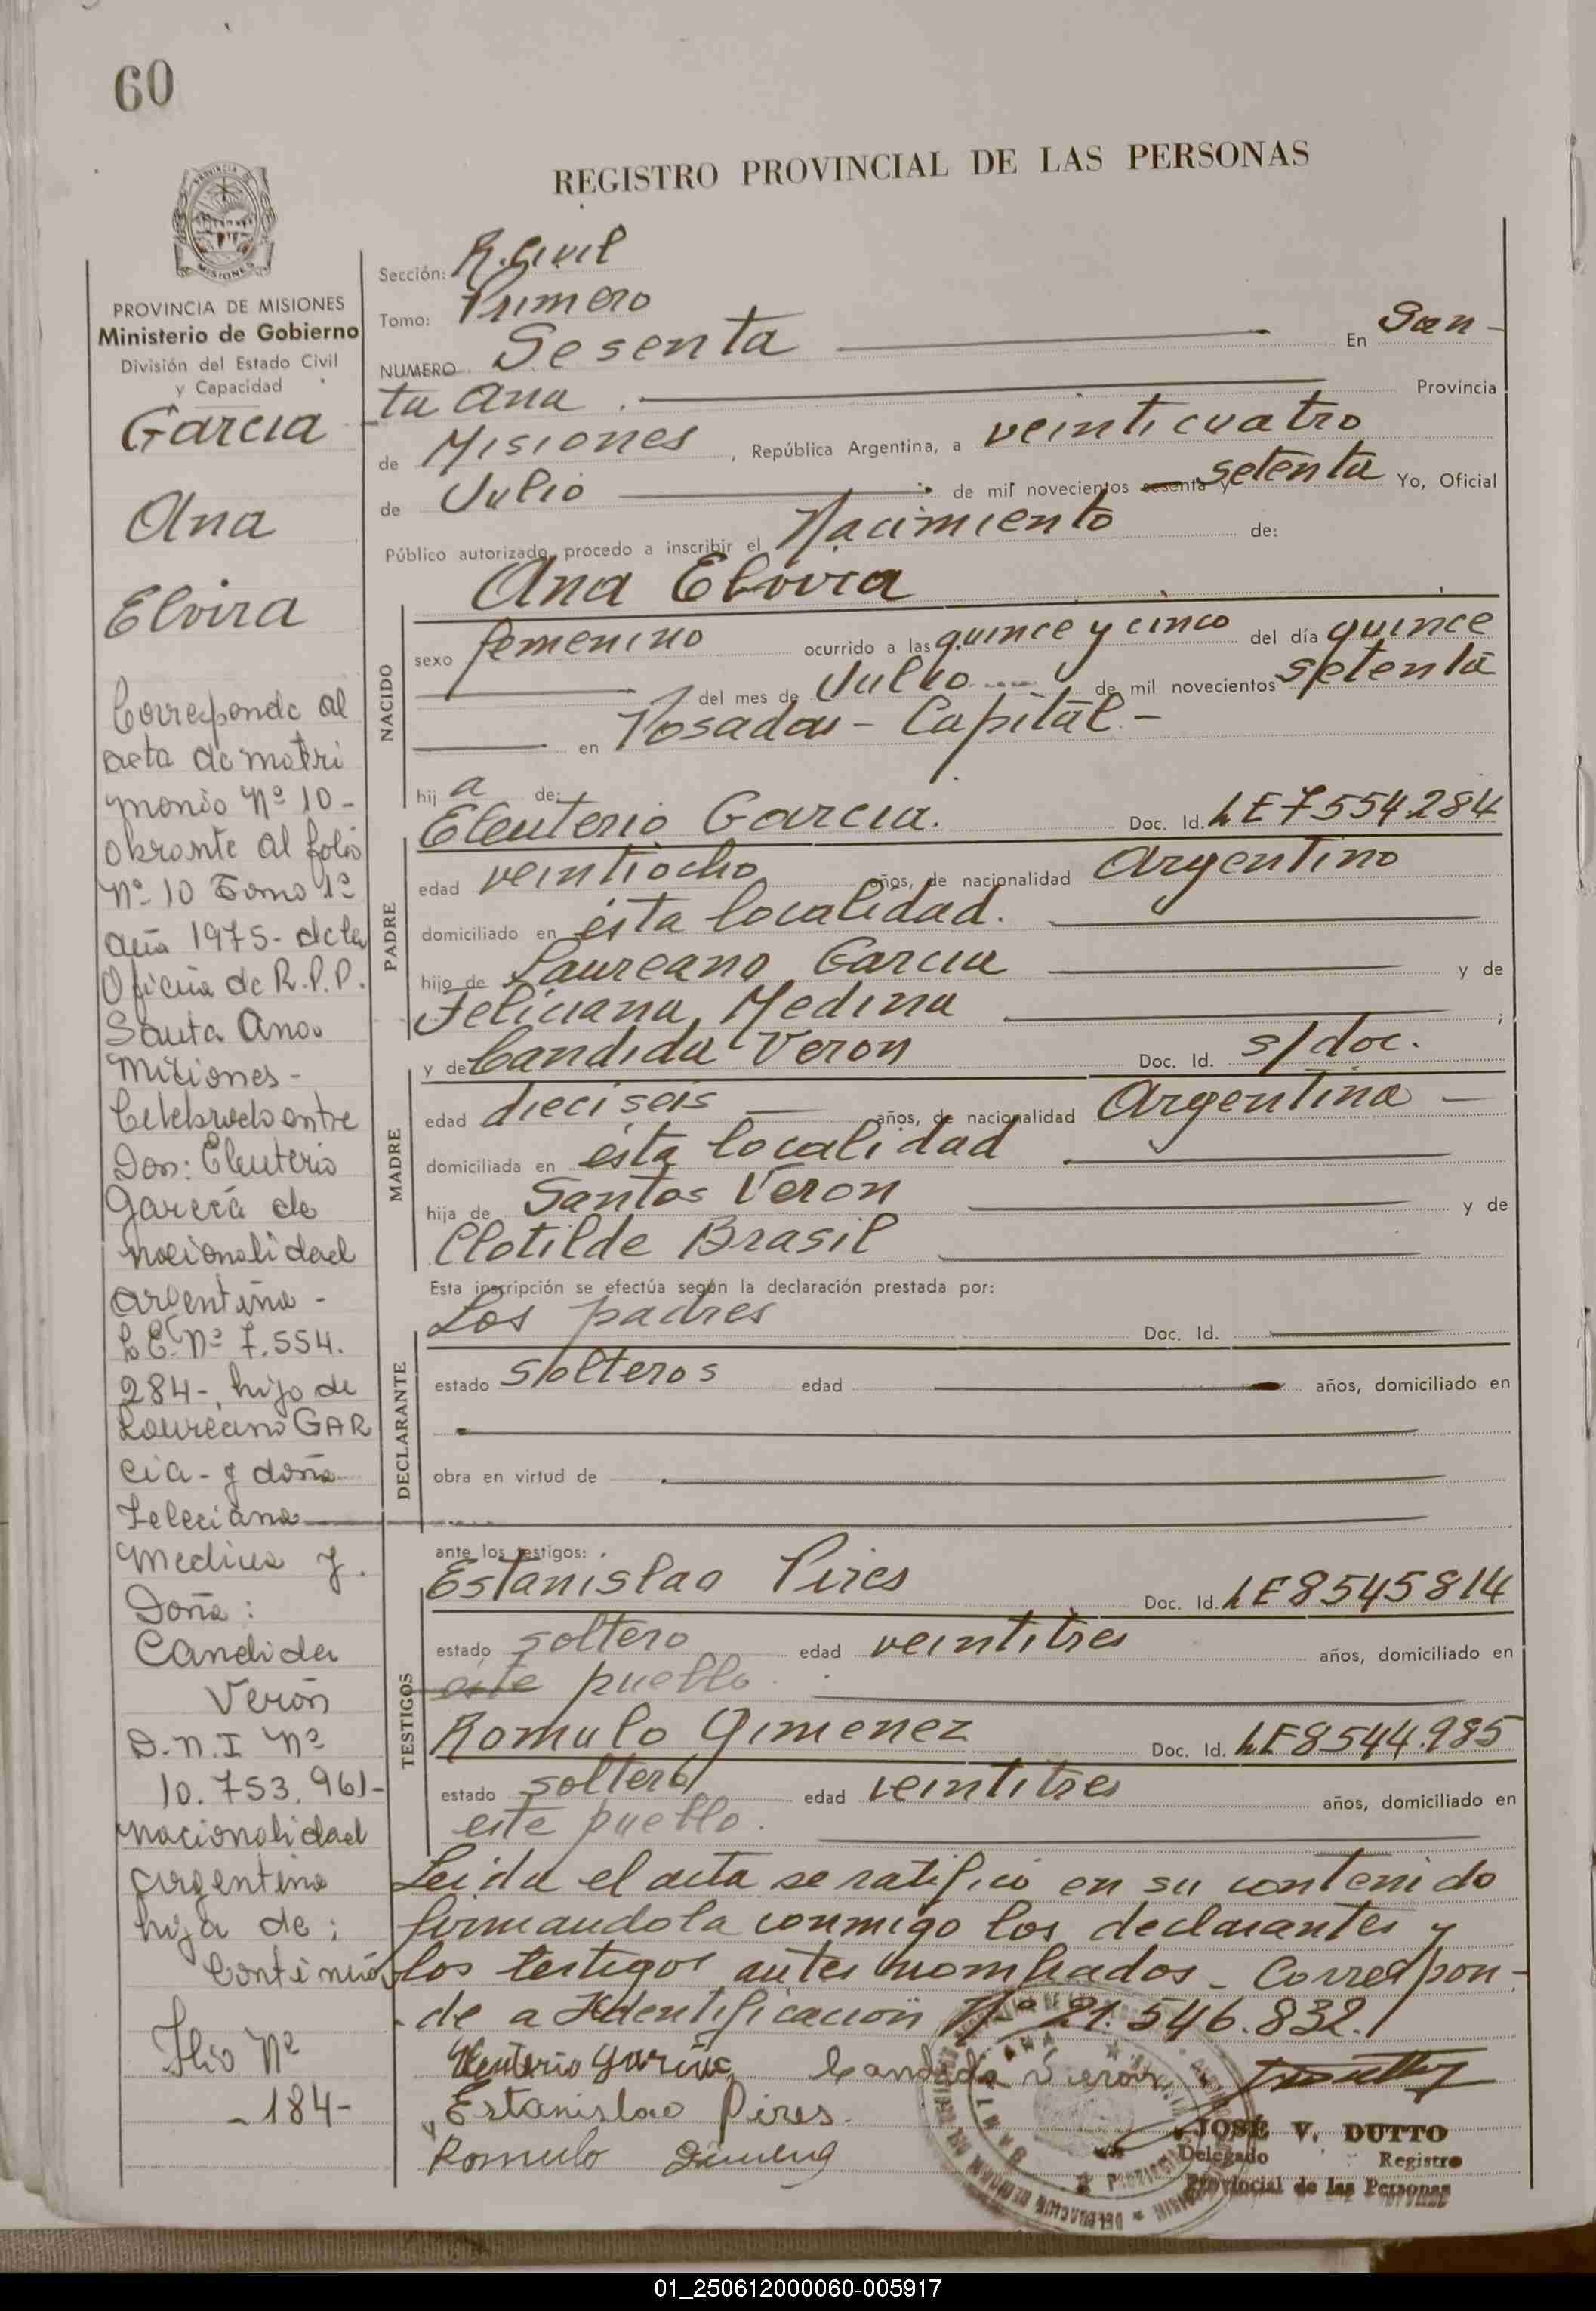 60
REGISTRO PROVINCIAL DE LAS PERSONAS
PROVINCIA DE MISIONES
Ministerio de Gobierno
División del Estado Civil
y Capacidad
Garcia
Ana
Elvira
Corresponde al
acta de matri
monio Nº 10 -
obrante al folio
Nº 10 Tomo 1º
año 1975 - de la
Oficina de R.P.P.
Santa Ana
Misiones -
Celebrado entre
Don: Eleuterio
García de
nacionalidad
argentina -
L.E. Nº 7.554.
284 -, hijo de
Laureano GAR
cia - y doña
Feleciana
Medina y.
Doña:
Candida
Verón
D.N.I Nº
10.753.961-
nacionalidad
argentina
hija de:
Continúa
Folio Nº
- 184 -
Sección: R. Civil
Tomo: Primero
NUMERO Sesenta En San-
ta Ana. Provincia
de Misiones, República Argentina, a veinticuatro
de Julio de mil novecientos sesenta y setenta Yo, Oficial
Público autorizado, procedo a inscribir el Nacimiento de:
Ana Elvira
NACIDO
sexo femenino ocurrido a las quince y cinco del día quince
del mes de Julio de mil novecientos setenta
en Posadas - Capital -
hija de:
PADRE
Eleuterio Garcia. Doc. Id. LE 7554.284
edad veintiocho años, de nacionalidad Argentino
domiciliado en ésta localidad.
hijo de Laureano Garcia y de
Feliciana Medina ;
MADRE
y de Candida Veron Doc. Id. s/doc.
edad dieciseis años, de nacionalidad Argentina
domiciliada en ésta localidad
hija de Santos Veron y de
Clotilde Brasil
Esta inscripción se efectúa según la declaración prestada por:
DECLARANTE
Los padres Doc. Id.
estado solteros edad años, domiciliado en
obra en virtud de
ante los testigos:
TESTIGOS
Estanislao Pires Doc. Id. LE 8545814
estado soltero edad veintitres años, domiciliado en
este pueblo.
Romulo Gimenez Doc. Id. LE 8544.985
estado soltero edad veintitres años, domiciliado en
este pueblo.
Leida el acta se ratifico en su contenido
firmandola conmigo los declarantes y
los testigos antes nombrados - Correspon-
de a Identificacion Nº 21.546.832.
Eleuterio Garcia Candida Veron
Estanislao Pires.
Romulo
JOSÉ V. DUTTO
Delegado Registro
Provincial de las Personas
01_250612000060-005917